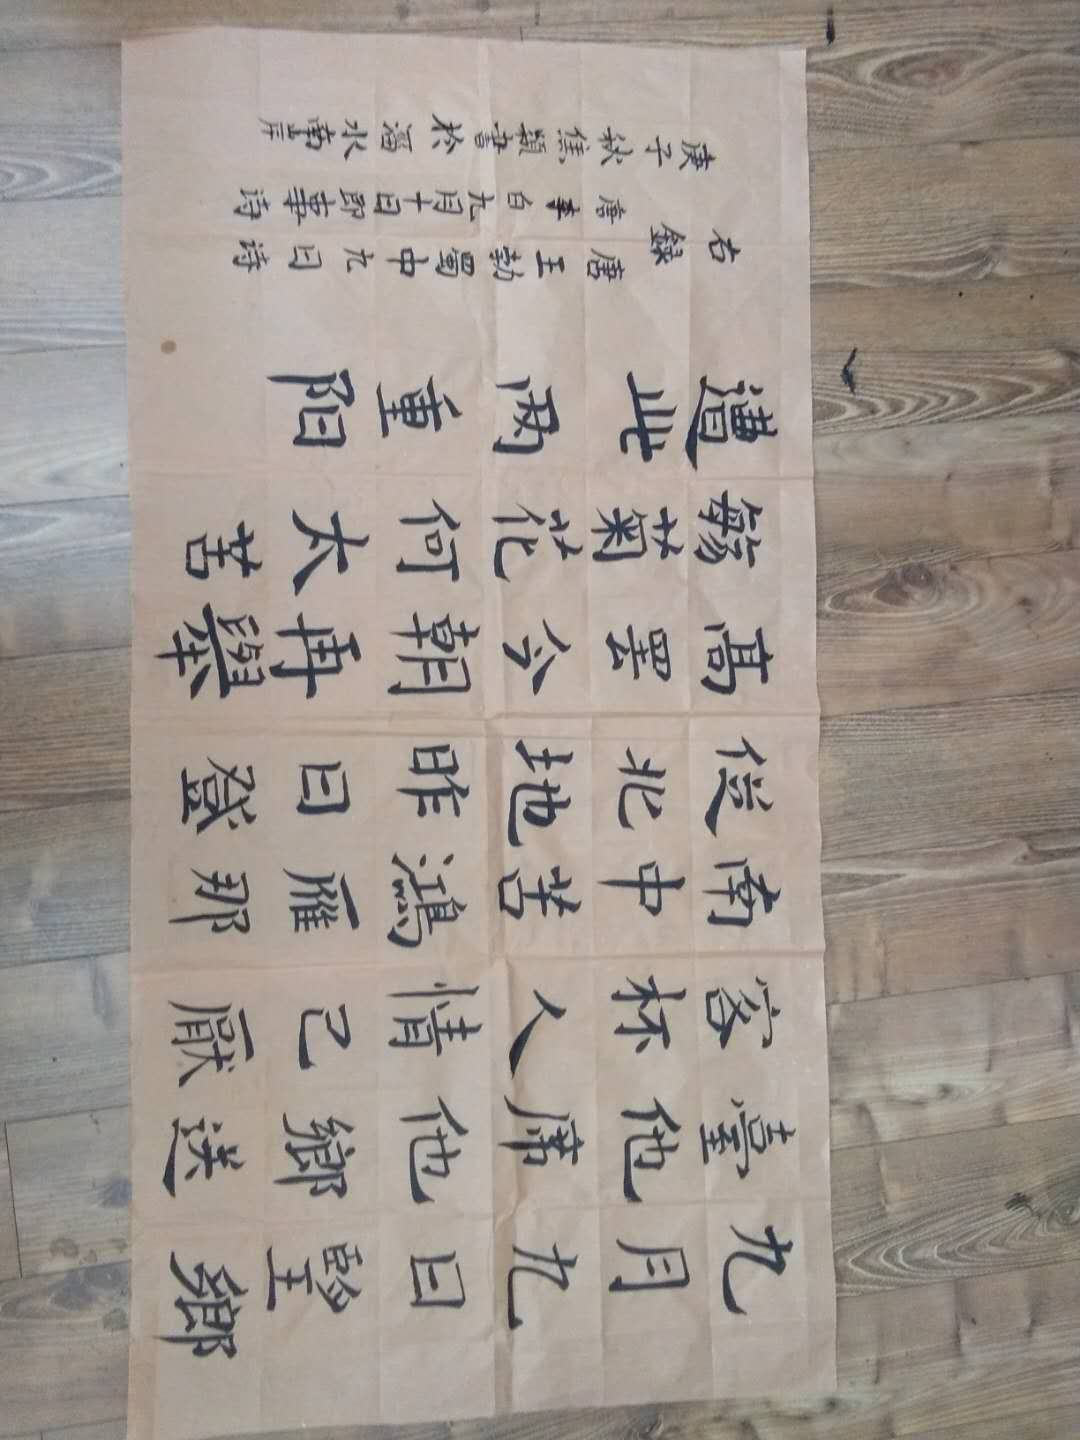 九月九日望鄉
臺他席他鄉送
客杯人情已厭
南中苦鴻雁那
從北地昨日登
高罢今朝再舉
觞菊花何太苦
遭此兩重阳
右錄
唐王勃蜀中九日诗
唐李白九月十日即事诗
庚子秋焦穎書於淄水南岸